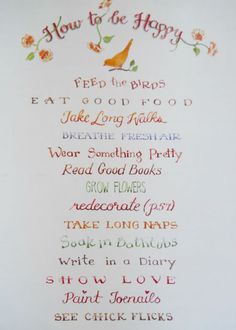 How to be Happy
FEED the BIRDS
EAT GOOD FOOD
Take Long Walks
BREATHE FRESH AIR
Wear Something Pretty
Read Good Books
GROW FLOWERS
redecorate (p57)
TAKE LONG NAPS
Soak in Bathtubs
Write in a Diary
SHOW LOVE
Paint Toenails
SEE CHICK FLICKS